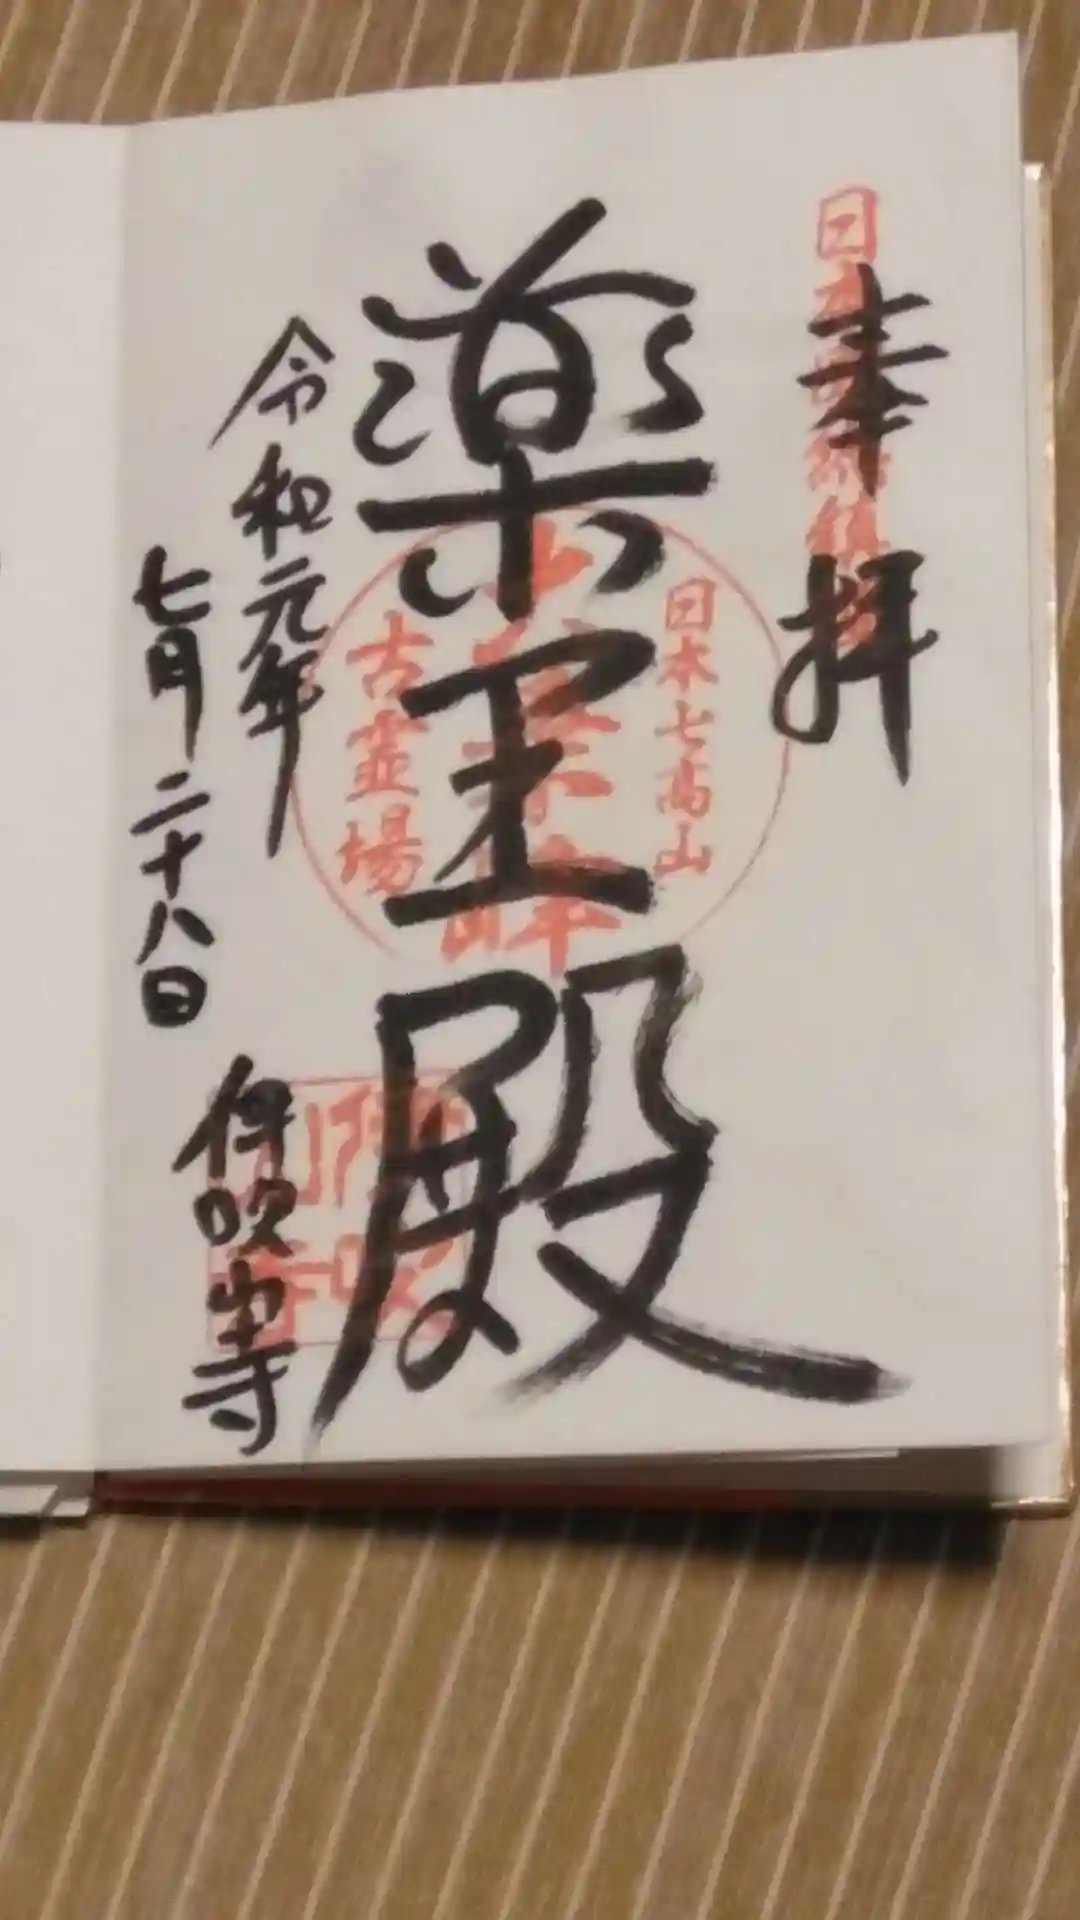 奉拝
日本七高山
薬王殿
古霊場
令和元年
七月二十八日
伊吹山寺